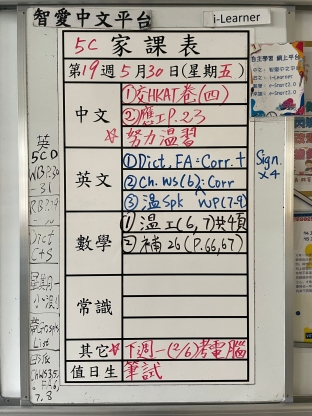 智愛中文平台
i-Learner
5C 家課表
第19週5月30日(星期五)
中文
①交HKAT卷(四)
②應工P.23
☆努力溫習
英文
①Dict. EA=Corr.+
②Ch. WS(6)=Corr
③溫Spk WP(7-9)
數學
①溫工(6,7)共4頁
②補26(P.66,67)
常識
其它
☆下週一(2/6)考電腦
值日生
筆試
Sign.
x4
自主學習 網上平台
英
5CD
Dict
C+S
List
7,8